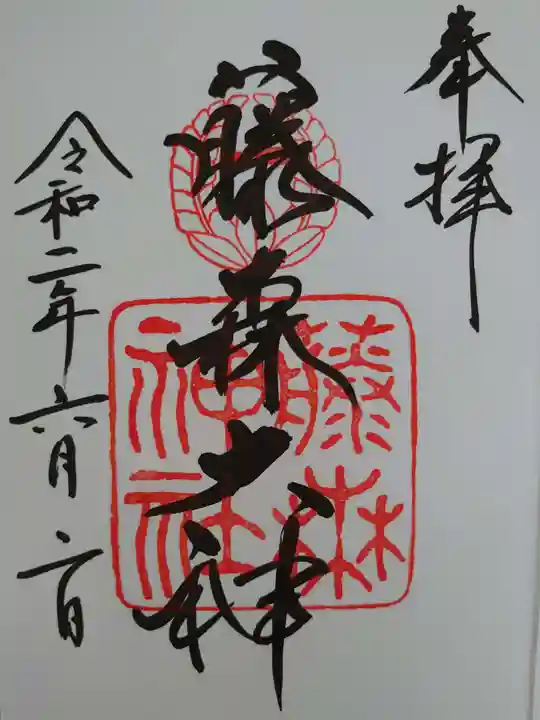 奉拝
藤森大神
藤森
神社
令和二年六月六日